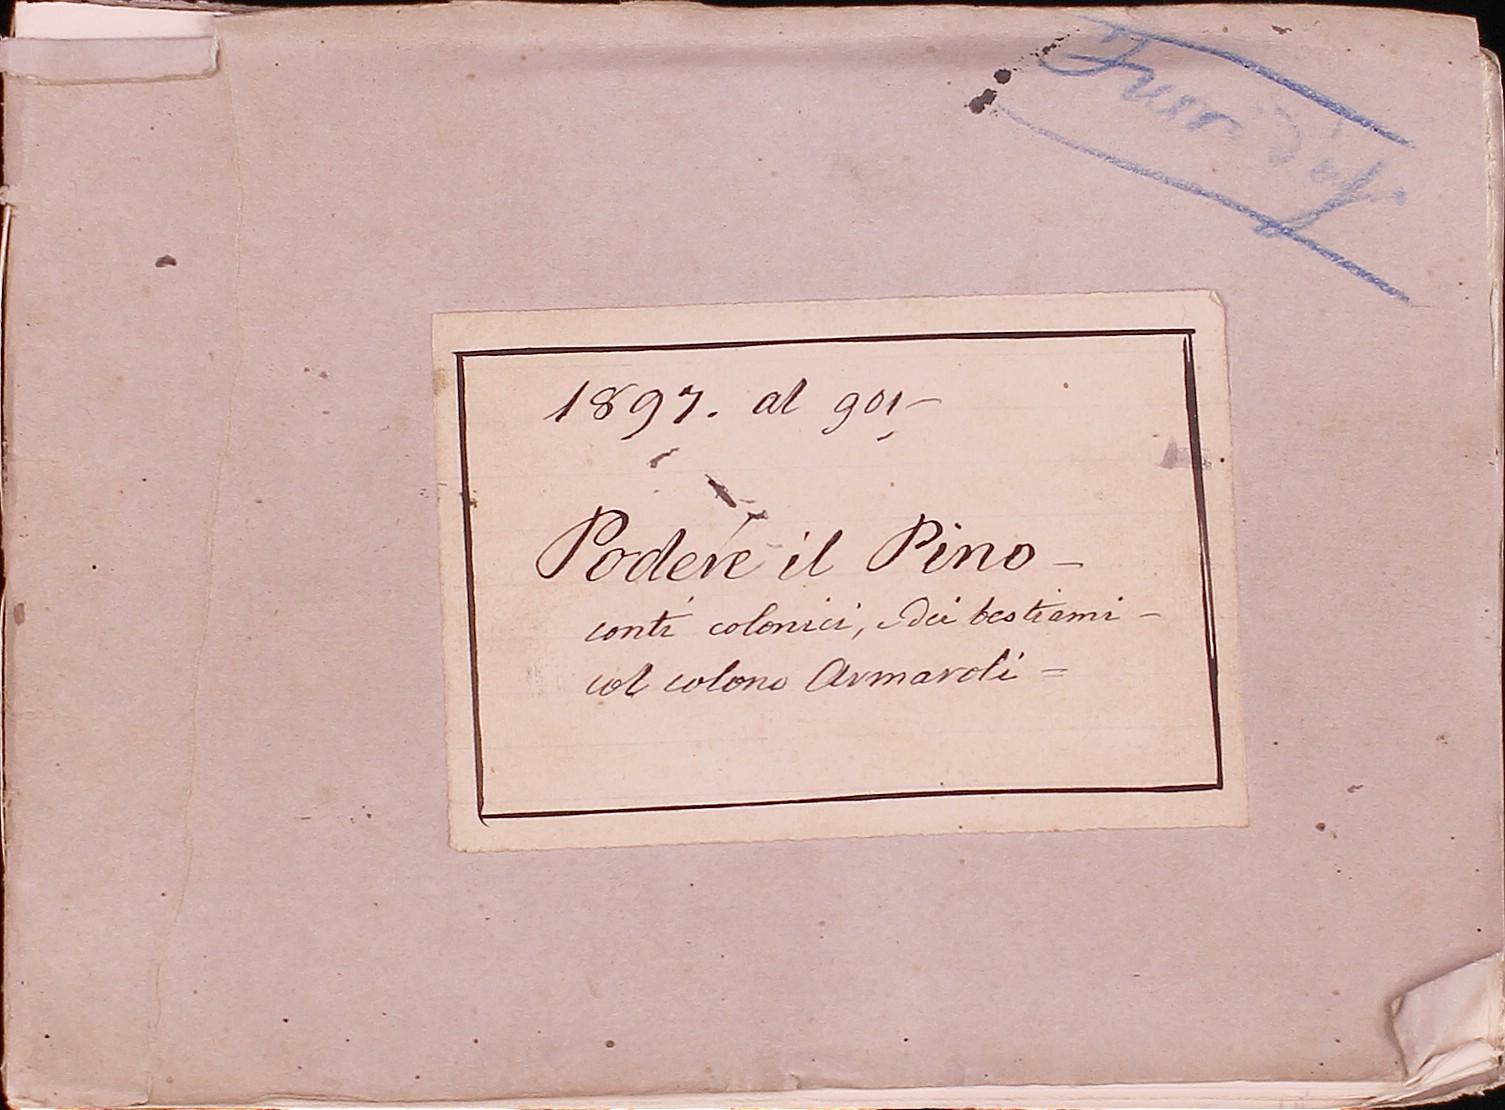 1897. al 901-
Podere il Pino -
conti colonici, dei bestiami -
col colono Armaroli =